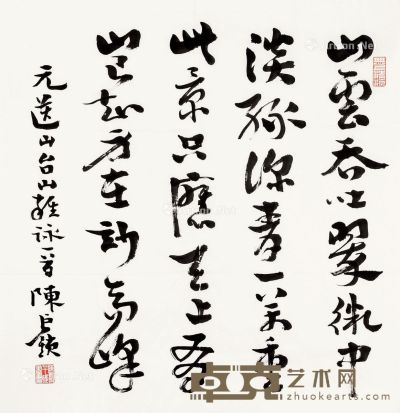 山雲吞吐翠微中
淡綠深青一萬重
此景只應天上有
豈知身在妙高峰
元遺山台山雜詠一首 陳巨鎖
卓克艺术网
www.zhuokearts.com